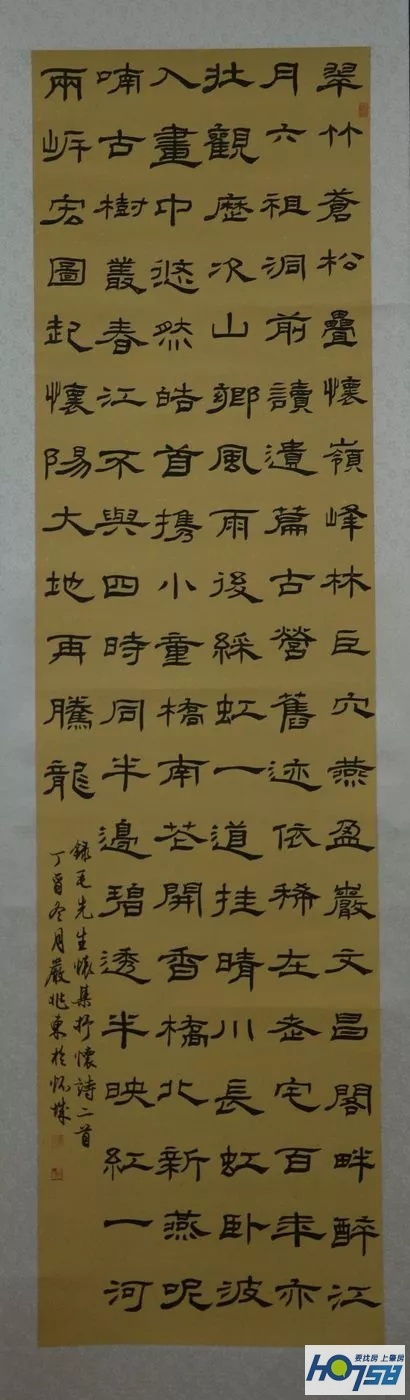 翠竹蒼松疊懷嶺峰林巨穴燕盈巖文昌閣畔醉江
月六祖洞前讀遺篇古營舊迹依稀在老宅百年亦
壯觀歷次山鄉風雨後綵虹一道挂晴川長虹卧波
入畫中悠然皓首携小童橋南芲開香橋北新燕呢
喃古樹叢春江不與四時同半邊碧透半映紅一河
兩岸宏圖起懷陽大地再騰龍
錄毛先生懷集抒懷詩二首
丁酉冬月嚴兆東於怀城
要找房 上肇房
HO758